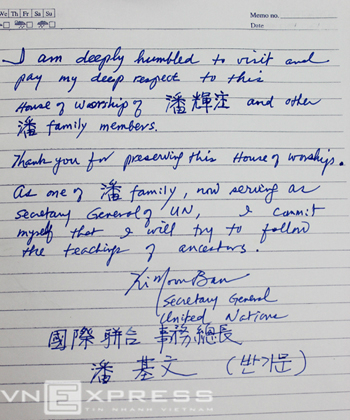 We Th Fr Sa Su
Memo no.
Date
I am deeply humbled to visit and
pay my deep respect to this
House of worship of 潘輝注 and other
潘 family members.
Thank you for preserving this House of worships.
As one of 潘 family, now serving as
Secretary General of UN, I commit
myself that I will try to follow
the teachings of ancestors.
Ki Moon Ban
Secretary General
United Nations
國際聯合 事務總長
潘 基文 (반기문)
VNEXPRESS
TIN NHANH VIETNAM